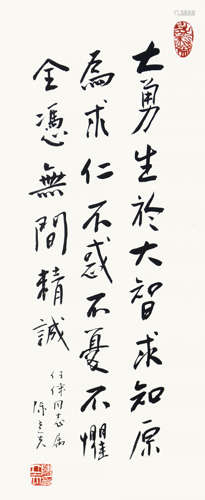 大勇生於大智求知原
為求仁不惑不憂不懼
全憑無間精誠
任傑同志屬
陳立夫